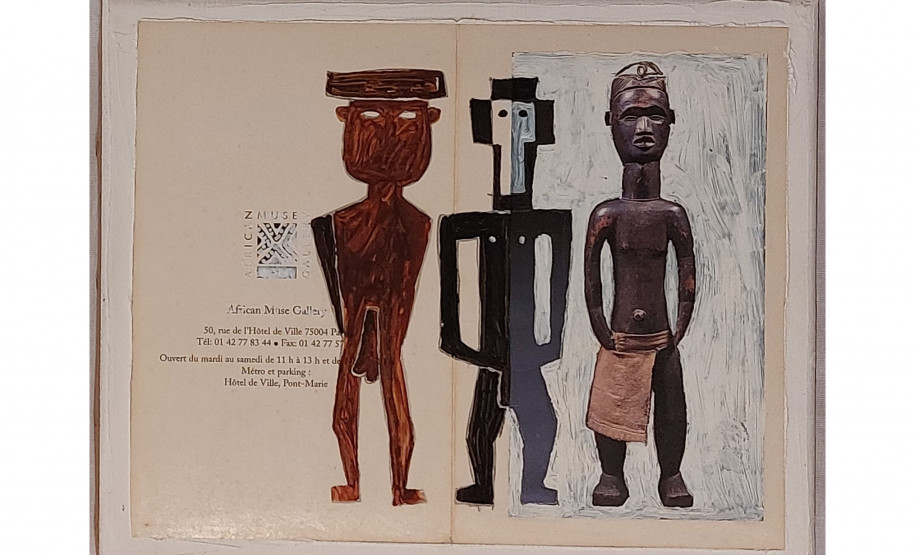 AFRICAN MUSE GALLERY
African Muse Gallery
50, rue de l'Hôtel de Ville 75004
Tél: 01 42 77 83 44 • Fax: 01 42 77 57
Ouvert du mardi au samedi de 11 h à 13 h et de
Métro et parking :
Hôtel de Ville, Pont-Marie